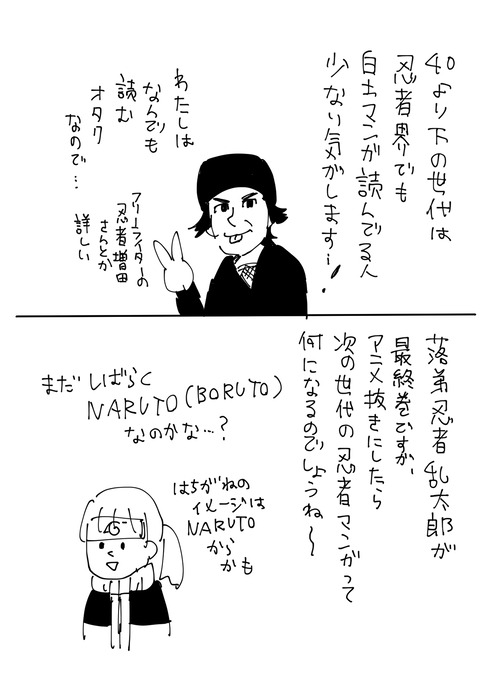 40より下の世代は
忍者界でも
白土マンガ読んでる人
少ない気がします…!
わたしは
なんでも
読む
オタク
なので…
フリーライターの
忍者増田
さんとか
詳しい
落第忍者乱太郎が
最終巻ですが、
アニメ抜きにしたら
次の世代の忍者マンガって
何になるのでしょうね〜
まだしばらく
NARUTO(BORUTO)
なのかな…?
はちがねの
イメージは
NARUTO
から
かも